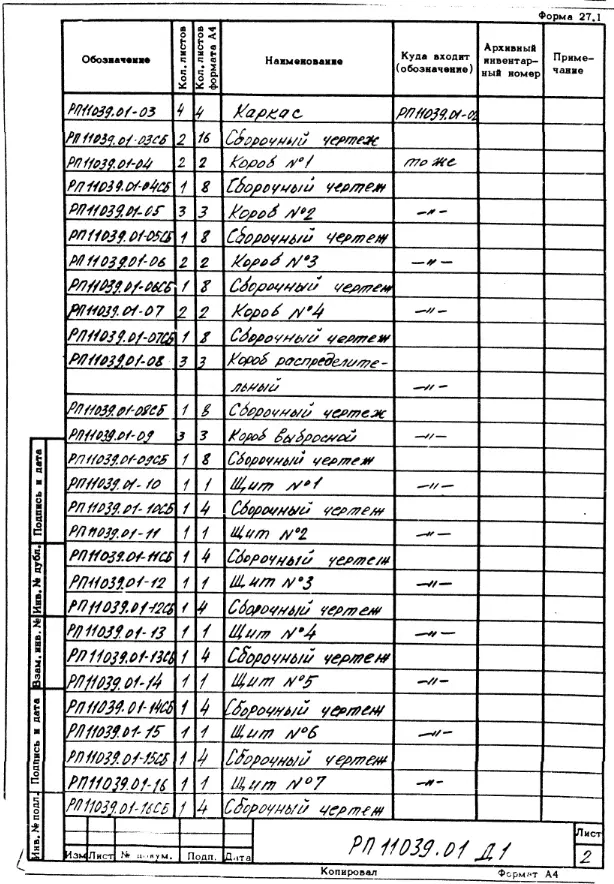 Форма 27.1
Обозначение Кол. листов Кол. листов формата А4 Наименование Куда входит (обозначение) Архивный инвентар-ный номер Приме-чание
РП11039.01-03 4 4 Каркас РП11039.01-02
РП11039.01-03СБ 2 16 Сборочный чертеж
РП11039.01-04 2 2 Короб №1 то же
РП11039.01-04СБ 1 8 Сборочный чертеж
РП11039.01-05 3 3 Короб №2 —〃—
РП11039.01-05СБ 1 8 Сборочный чертеж
РП11039.01-06 2 2 Короб №3 —〃—
РП11039.01-06СБ 1 8 Сборочный чертеж
РП11039.01-07 2 2 Короб №4 —〃—
РП11039.01-07СБ 1 8 Сборочный чертеж
РП11039.01-08 3 3 Короб распределите-
льный —〃—
РП11039.01-08СБ 1 8 Сборочный чертеж
РП11039.01-09 3 3 Короб выбросной —〃—
РП11039.01-09СБ 1 8 Сборочный чертеж
РП11039.01-10 1 1 Щит №1 —〃—
РП11039.01-10СБ 1 4 Сборочный чертеж
РП11039.01-11 1 1 Щит №2 —〃—
РП11039.01-11СБ 1 4 Сборочный чертеж
РП11039.01-12 1 1 Щит №3 —〃—
РП11039.01-12СБ 1 4 Сборочный чертеж
РП11039.01-13 1 1 Щит №4 —〃—
РП11039.01-13СБ 1 4 Сборочный чертеж
РП11039.01-14 1 1 Щит №5 —〃—
РП11039.01-14СБ 1 4 Сборочный чертеж
РП11039.01-15 1 1 Щит №6 —〃—
РП11039.01-15СБ 1 4 Сборочный чертеж
РП11039.01-16 1 1 Щит №7 —〃—
РП11039.01-16СБ 1 4 Сборочный чертеж
Инв. № подл. Подпись и дата Взам. инв. № Инв. № дубл. Подпись и дата
РП11039.01 Д1
Лист
2
Изм Лист № докум. Подп. Дата
Копировал Формат А4